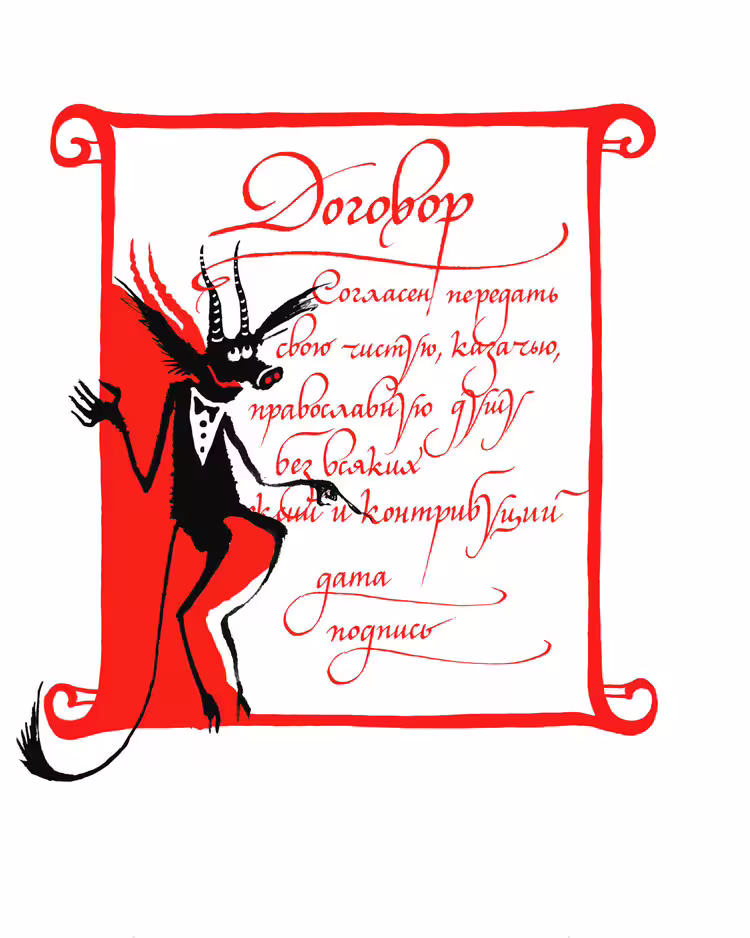 Договор
Согласен передать
свою чистую, казачью,
православную душу
без всяких
и контрибуций
дата
подпись